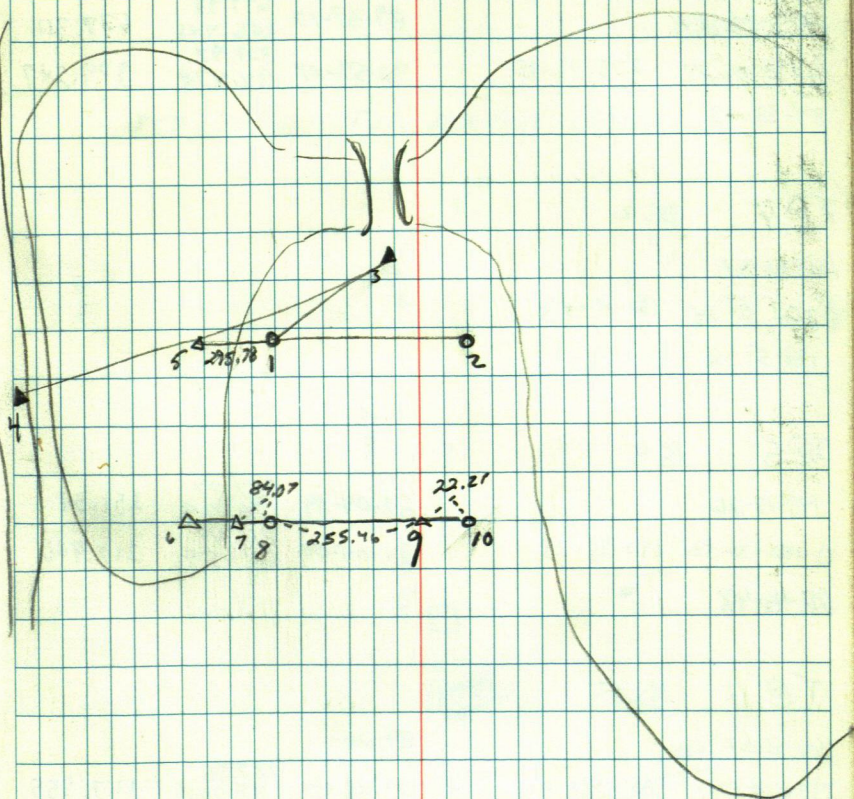 3
5 295.78 1 2
4
84.07 22.21
6 7 8 255.46 9 10